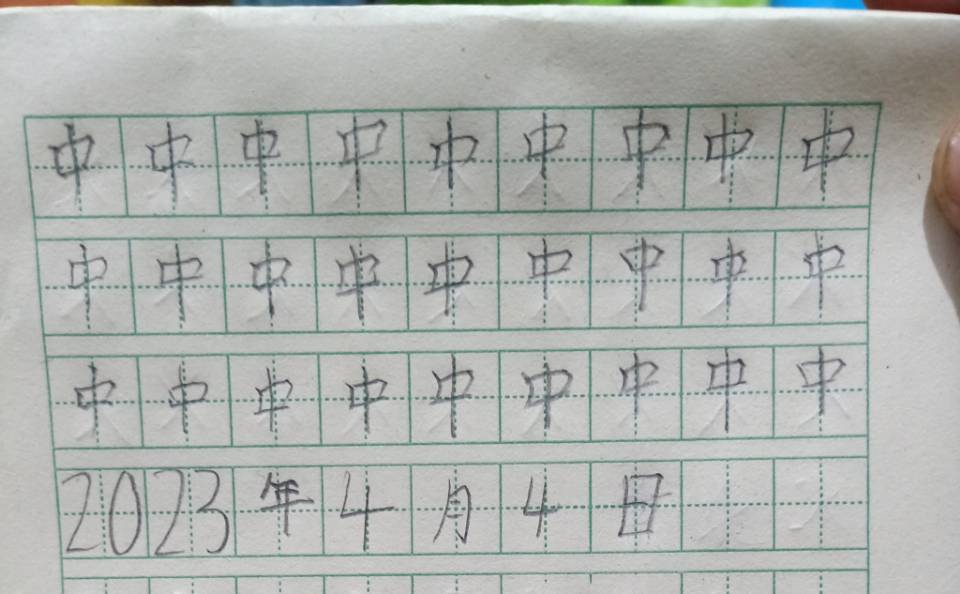 中中中中中中中中中
中中中中中中中中中
中中中中中中中中中
2023年4月4日